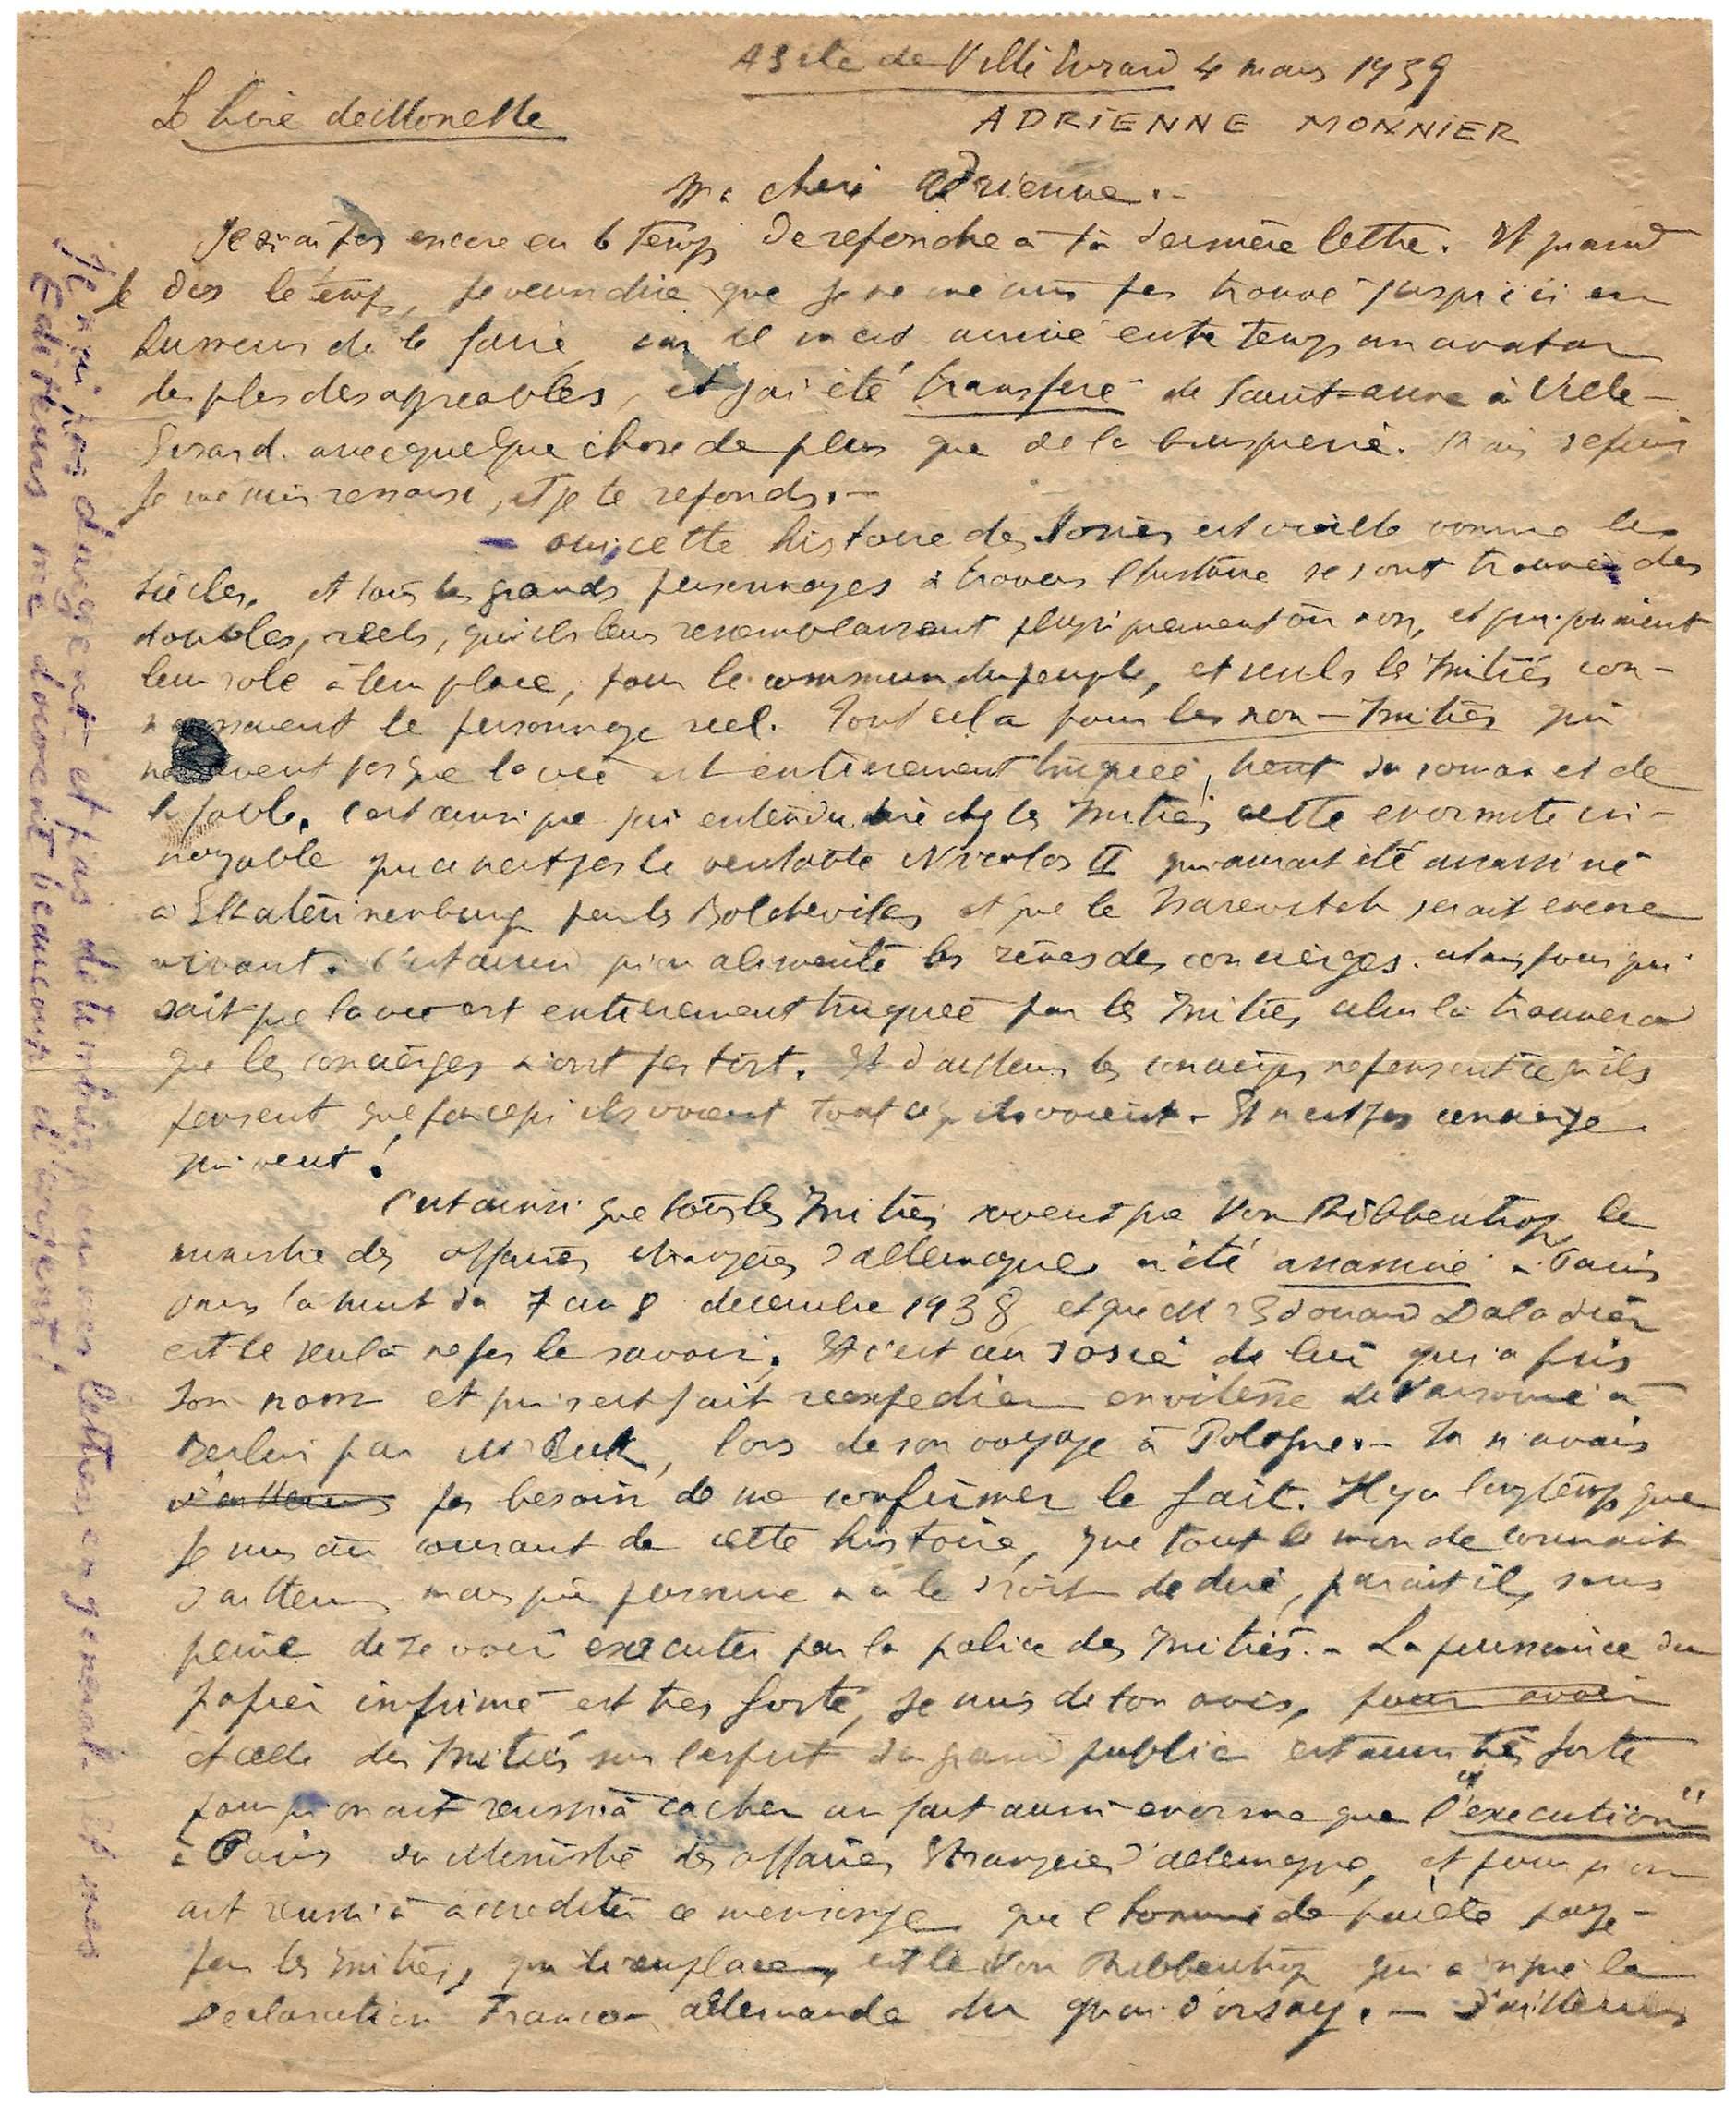 Asile de Ville Evrard 4 mars 1939
Le livre de Monelle
ADRIENNE MONNIER
Ma chere Adrienne. -
Je n'ai pas encore eu le temps de repondre à ta dernière lettre. Et quand
je dis le temps, je veux dire que je ne me suis pas trouvé jusqu'ici en
humeur de le faire, car il m'est arrivé entre temps un avatar
des plus desagreables, et j'ai été transferé de Saint-anne à Ville-
Evrard. avec quelque chose de plus que de la brusquerie. Mais depuis
je me suis ressaisi, et je te reponds. -
- oui, cette histoire des Sosies est vieille comme les
siècles, et tous les grands personnages à travers l'histoire se sont trouvés des
doubles, reels, qu'ils leur ressemblassent physiquement ou non, et qui jouaient
leur role à leur place, pour le commun du peuple, et seuls les Initiés con-
naissaient le personnage reel. Tout cela pour les non-Initiés qui
ne savent pas que la vie est entièrement truquée, tient du roman et de
la fable. C'est ainsi que j'ai entendu dire chez les Initiés cette enormité in-
croyable que ce n'est pas le veritable Nicolas II qui aurait été assassiné
à Ekaterinenburg par les Bolcheviks et que le Tsarevitch serait encore
vivant. C'est ainsi qu'on alimente les rêves des concierges. alors pour qui
sait que la vie est entierement truquée par les Initiés celui là trouvera
que les concierges n'ont pas tort. Et d'ailleurs les concierges ne pensent ce qu'ils
pensent que parce qu'ils voient tout ce qu'ils voient - Et n'est pas concierge
qui veut!
C'est ainsi que tous les Initiés savent que Von Ribbentrop, le
ministre des affaires etrangères d'allemagne a été assassiné à Paris
dans la nuit du 7 au 8 decembre 1938, et que Mr Edouard Daladier
est le seul à ne pas le savoir. Et c'est un sosie de lui qui a pris
son nom et qui s'est fait reexpedier en vitesse de Varsovie à
Berlin par Mr Bek, lors de son voyage à Pologne. - Tu n'avais
d'ailleurs pas besoin de me confirmer le fait. Il y a longtemps que
je suis au courant de cette histoire, que tout le monde connait
d'ailleurs mais que personne n'a le droit de dire, parait il, sous
peine de se voir executer par la police des Initiés. - La puissance du
papier imprimé est tres forte, je suis de ton avis, pour avoir
et celle des Initiés sur l'esprit du grand public est aussi très forte
pour qu'on ait reussi à cacher un fait aussi enorme que "l'execution"
à Paris du Ministre des affaires Etrangeres d'allemagne, et pour qu'on
ait reussi à accrediter ce mensonge que l'homme de paille payé
par les Initiés, qui le remplace, est le Von Ribbentrop qui a signé la
Declaration Franco-allemande du quai d'orsay. - D'ailleurs
Je n'ai pas d'argent et pas de timbres pour mes lettres en general. Et mes
Editeurs me doivent beaucoup d'argent!